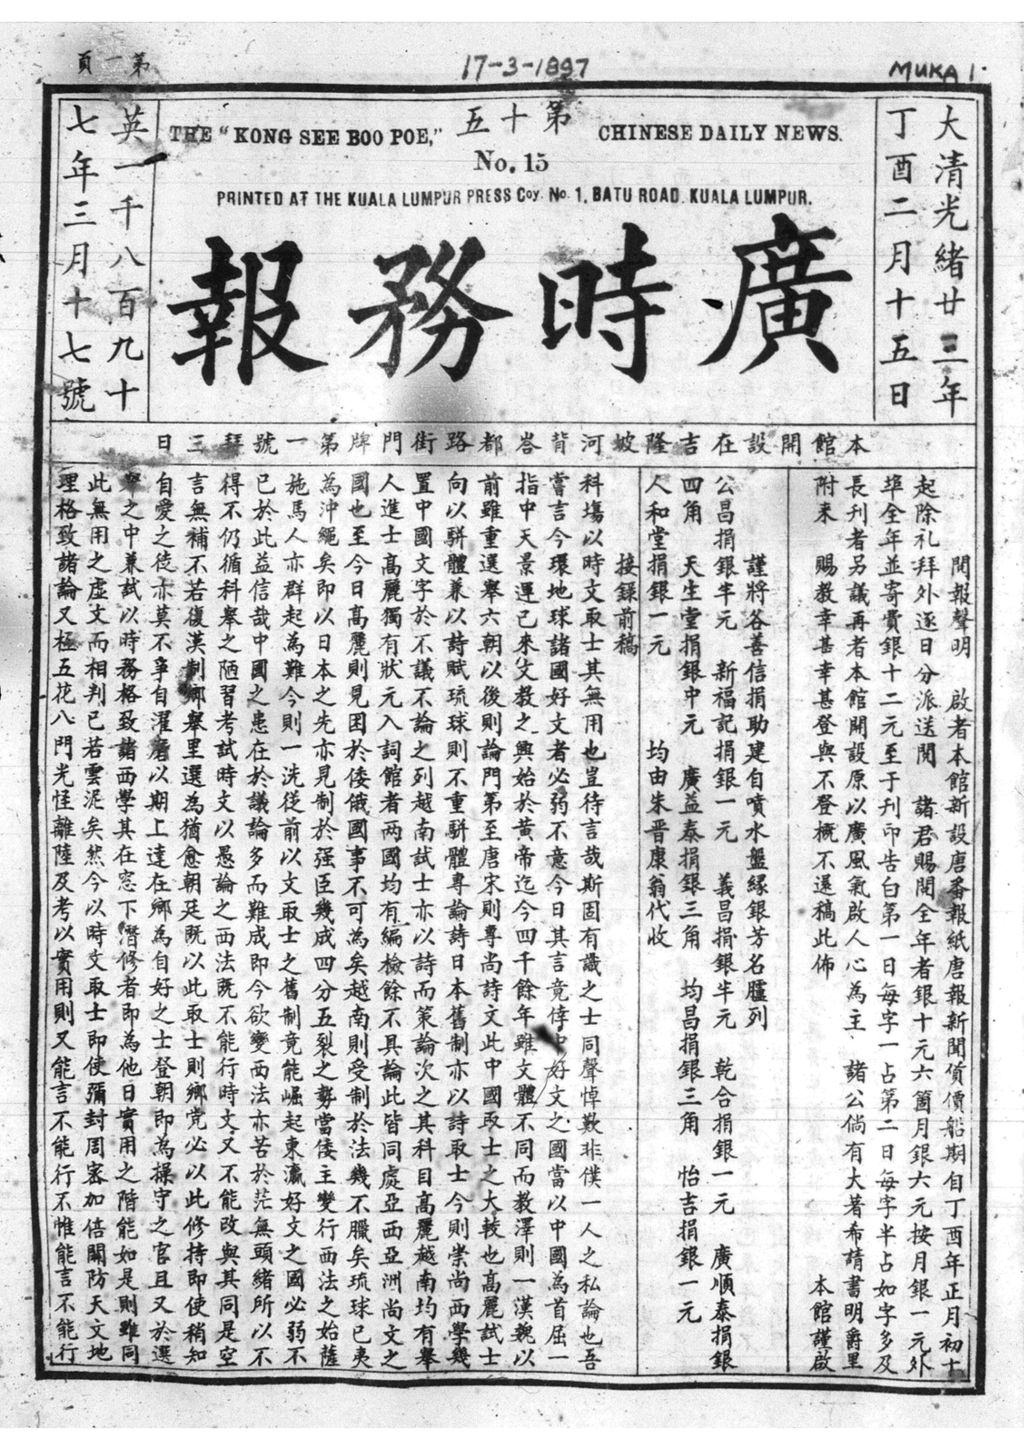 第一頁
17-3-1897
MUKA 1.
大清光緒廿三年
丁酉二月十五日
第十五
THE "KONG SEE BOO POE," CHINESE DAILY NEWS.
No. 15
PRINTED AT THE KUALA LUMPUR PRESS Coy. No. 1, BATU ROAD. KUALA LUMPUR.
廣時務報
英一千八百九十
七年三月十七號
本館開設在吉隆坡河背峇都路街門牌第一號拜三日
閱報聲明 啟者本館新設唐番報紙唐報新聞價價船期自丁酉年正月初十
起除礼拜外逐日分派送閱 諸君賜閱全年者銀十元六箇月銀六元按月銀一元外
埠全年並寄費銀十二元至于刊印告白第一日每字一占第二日每字半占如字多及
長刊者另議再者本館開設原以廣風氣啟人心為主 諸公倘有大著希請書明爵里
附来 賜教幸甚幸甚登與不登概不還稿此佈 本館謹啟
謹將各善信捐助建自噴水盤緣銀芳名臚列
公昌捐銀半元 新福記捐銀一元 義昌捐銀半元 乾合捐銀一元 廣順泰捐銀
四角 天生堂捐銀中元 廣益泰捐銀三角 均昌捐銀三角 怡吉捐銀一元
人和堂捐銀一元 均由朱晋康翁代收
接錄前稿
科塲以時文取士其無用也豈待言哉斯固有識之士同聲悼歎非僕一人之私論也吾
嘗言今環地球諸國好文者必弱不意今日其言竟倖中好文之國當以中國為首屈一
指中天景運已来文教之興始於黄帝迄今四千餘年雖文體不同而教澤則一漢魏以
前雖重選舉六朝以後則論門第至唐宋則專尚詩文此中國取士之大較也高麗試士
向以駢體兼以詩賦琉球則不重駢體專論詩日本舊制亦以詩取士今則崇尚西學幾
置中國文字於不議不論之列越南試士亦以詩而策論次之其科目高麗越南均有舉
人進士高麗獨有狀元入詞館者两國均有編檢餘不具論此皆同處亞西亞洲尚文之
國也至今日高麗則見困於倭俄國事不可為矣越南則受制於法幾不臘矣琉球已夷
為沖繩矣即以日本之先亦見制於强臣幾成四分五裂之勢當倭主變行西法之始薩
施馬人亦群起為難今則一洗從前以文取士之舊制竟能崛起東瀛好文之國必弱不
已於此益信哉中國之患在於議論多而難成即今欲變西法亦苦於茫無頭緒所以不
得不仍循科舉之陋習考試時文以愚論之西法既不能行時文又不能改與其同是空
言無補不若復漢制鄉舉里選為猶愈朝廷既以此取士則鄉党必以此修持即使稍知
自愛之徒亦莫不爭自濯磨以期上達在鄉為自好之士登朝即為操守之官且又於選
舉之中兼試以時務格致諸西學其在窓下潛修者即為他日實用之階能如是則雖同
此無用之虚文而相判已若雲泥矣然今以時文取士即使彌封周密加倍關防天文地
理格致諸論又極五花八門光怪離陸及考以實用則又能言不能行不惟能言不能行